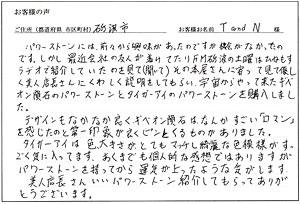 お客様の声
ご住所(都道府県 市区町村) 砂沢市 お客様お名前 T and N 様
パワーストーンには、前々から興味があったのですが機会がなかったの
です。しかし最近会社の友人が着けてたり
ラジオで紹介していたのを見て(聞いて)その本屋さんに寄って見て優し
く美人店長さんにくわしく説明をしてもらい、宇宙からやって来たギベ
オン隕石のパワーストーンとタイガーアイのパワーストーンを購入しま
した。
デザインもなかなか良くギベオン隕石はなんかすごい「ロマン」
を感じたのと第一印象が良くピンとくるものがありました。
タイガーアイは色、大きさが、とてもマッチし綺麗な色模様がす
ごく気に入ってます。あくまでも個人的な感想ではありますが
パワーストーンを持ってから運気が上ったような気がします。
美人店長さんいいパワーストーン紹介してもらってありが
とうございます。